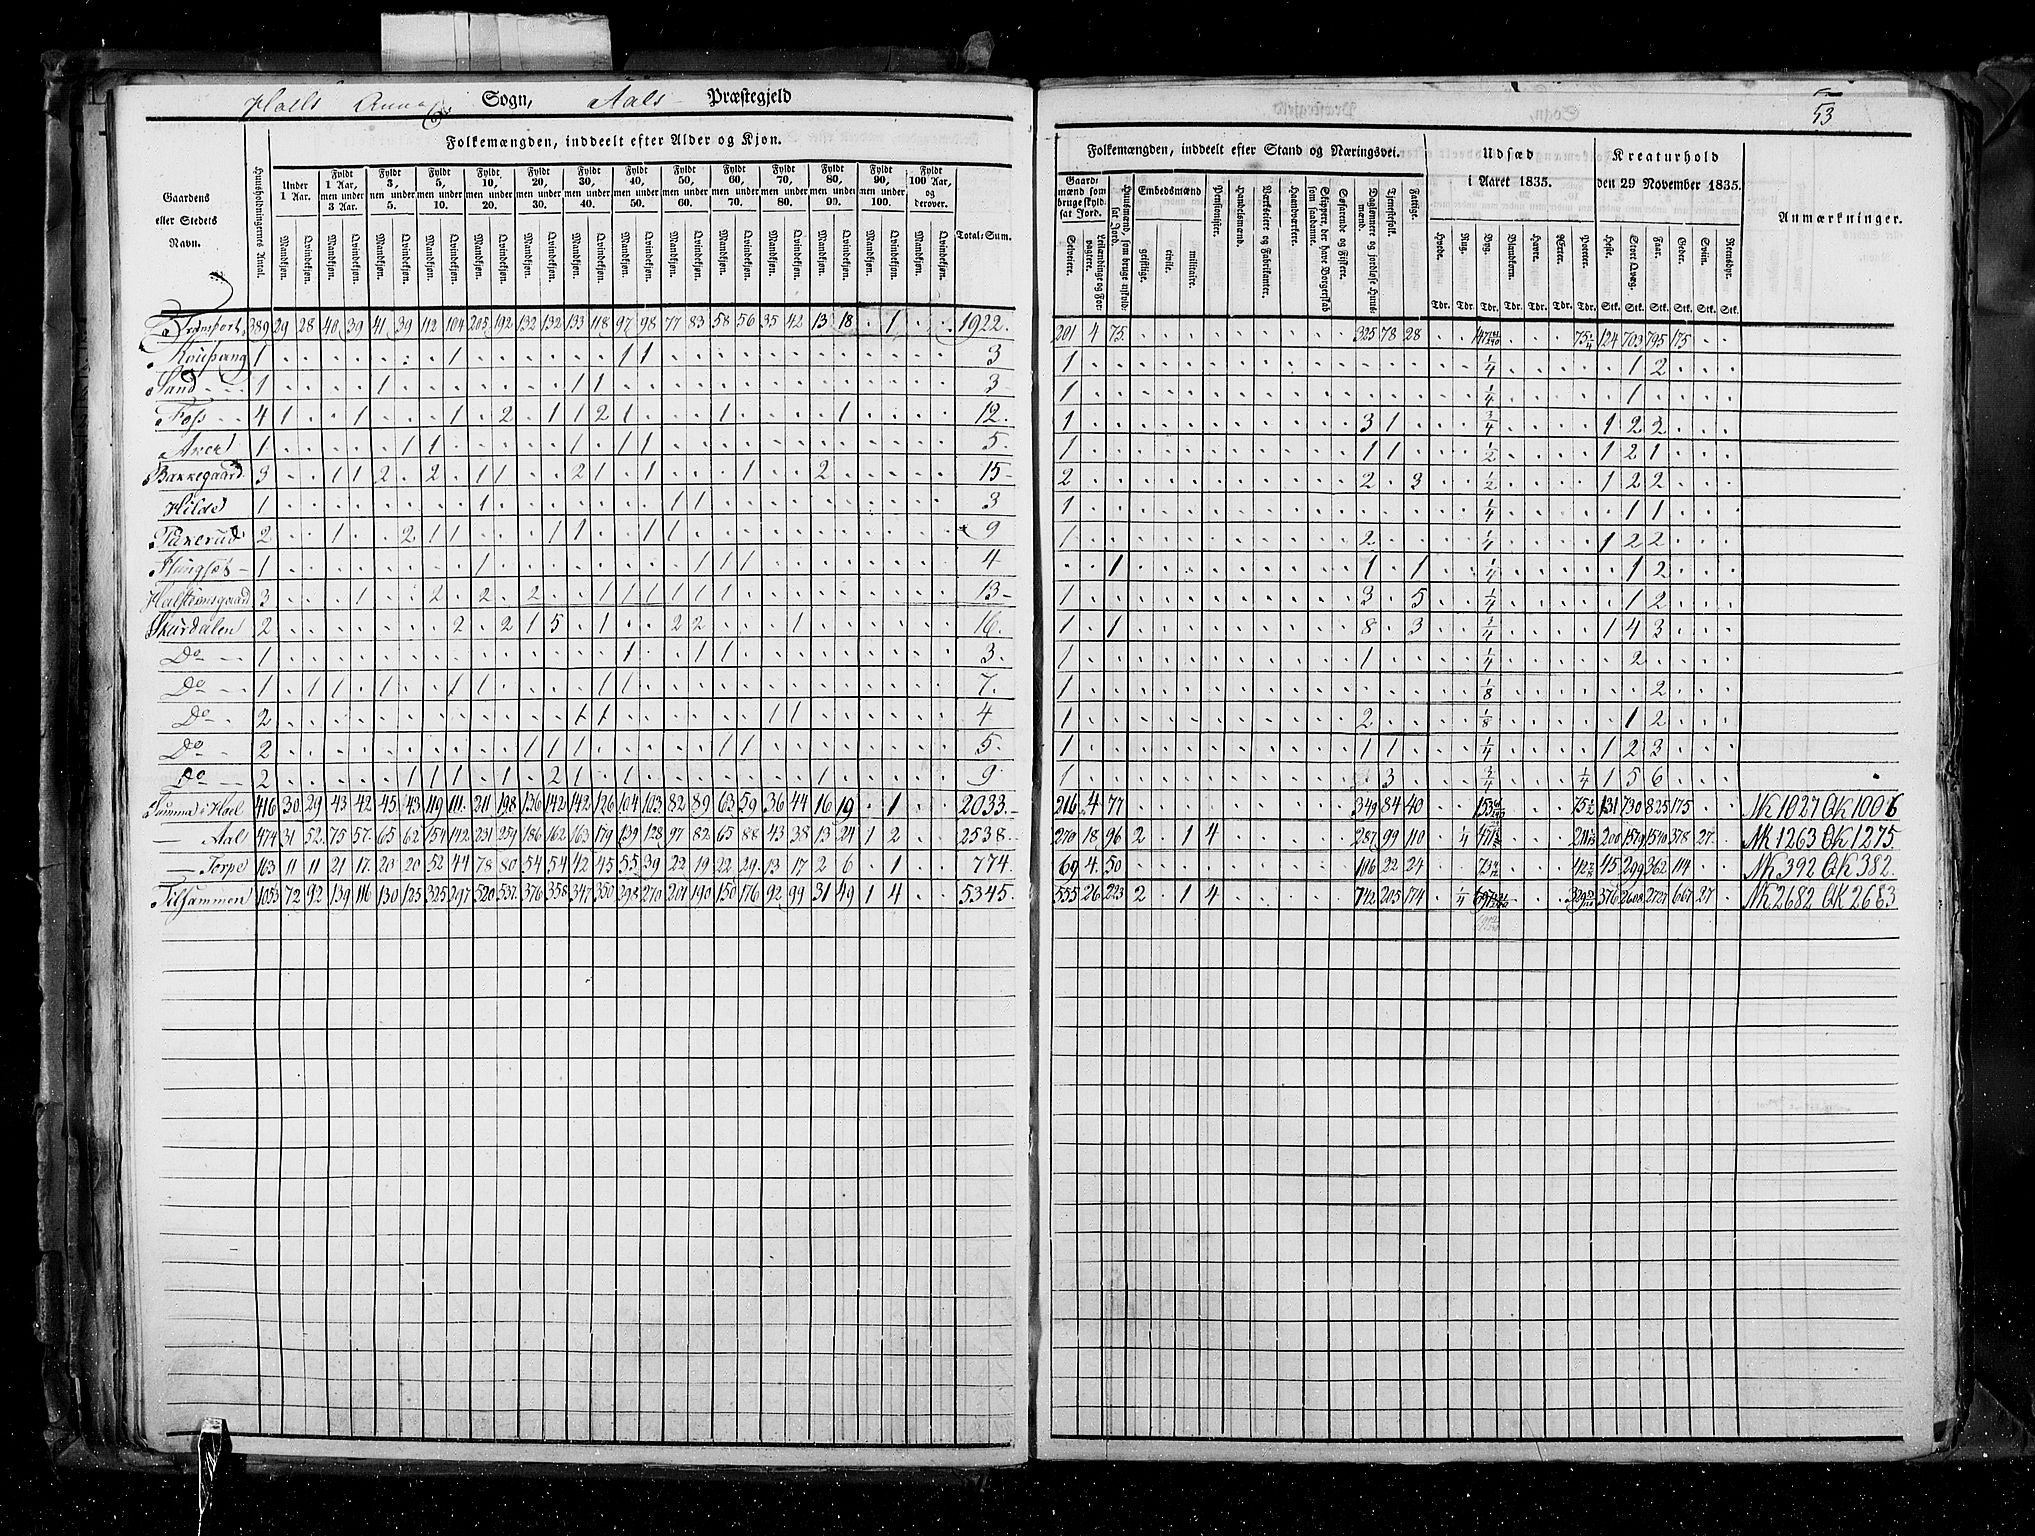 Hoels Annex Sogn, Aals Præstegjeld
53
Folkemængden, inddeelt efter Alder og Kjøn.
Gaardens eller Stedets Navn.
Huusholdningernes Antal.
Under 1 Aar.
Fyldt 1 Aar, men under 3 Aar.
Fyldt 3, men under 5.
Fyldt 5, men under 10.
Fyldt 10, men under 20.
Fyldt 20, men under 30.
Fyldt 30, men under 40.
Fyldt 40, men under 50.
Fyldt 50, men under 60.
Fyldt 60, men under 70.
Fyldt 70, men under 80.
Fyldt 80, men under 90.
Fyldt 90, men under 100.
Fyldt 100 Aar, og derover.
Mandkjøn. Qvindekjøn.
Total-Sum.
Folkemængden, inddeelt efter Stand og Næringsvei.
Gaardmænd som bruge skyldsat Jord.
Selveiere.
Leilændinge og Forpagtere.
Huusmænd, som bruge uskyldsat Jord.
Embedsmænd
geistlige. civile. militaire.
Pensionister.
Handelsmænd.
Værkseiere og Fabrikanter.
Haandværkere.
Skippere, der have Borgerskab som saadanne.
Søfarende og Fiskere.
Daglønnere og jordløse Huusmænd.
Tjenestefolk.
Fattige.
Udsæd i Aaret 1835.
Hvede. Rug. Byg. Blandkorn. Havre. Erter. Poteter.
Tdr. Tdr. Tdr. Tdr. Tdr. Tdr. Tdr.
Kreaturhold den 29 November 1835.
Heste. Stort Qvæg. Faar. Geder. Sviin. Reensdyr.
Stk. Stk. Stk. Stk. Stk. Stk.
Anmærkninger.
Transport, 389 29 28 40 39 41 39 112 104 205 192 132 132 133 118 97 98 77 83 58 56 35 42 13 18 . 1 . . 1922. 201 4 75 325 78 28 75 1/4 124 703 795 175
1 1 1 1 3 1 1/4 1 2
Sand 1 1 1 1 3 1 1/4 1
Foss 4 1 1 1 2 1 1 2 1 1 1 12. 1 3 1 3/4 1 2 2
Aker 1 1 1 1 1 1 5. 1 1 1 1/2 1 2 1
Bakkegaard 3 1 1 2 2 1 1 2 1 1 1 2 15 2 2 3 1/2 1 2 2
Hilde 1 1 1 1 3 1 1/4 1 1
2 1 2 1 1 1 1 1 1 9 1 2 1/4 1 2 2
1 1 1 1 1 4 1 1 1 1/4 1 2
3 1 2 2 2 1 1 1 1 1 1 13 1 3 5 1/4 1 2
Skurdalen 2 2 2 1 5 1 2 2 1 16. 1 1 8 3 3/4 1 4 3
Do 1 1 1 1 3. 1 1 1/4 2
Do 1 1 1 1 1 1 1 1 7. 1 1/8 2
Do 2 1 1 1 1 4 1 2 1/8 1 2
Do 2 1 1 1 1 1 5. 1 1 1 1/4 1 2 3
Do 2 1 1 1 1 2 1 1 1 9. 1 3 3/4 1/4 1 5 6
Summa i Hoel 416 30 29 43 42 45 43 119 111 211 198 136 142 142 126 104 103 82 89 63 59 36 44 16 19 . 1 2033. 216 4 77 349 84 40 75 1/2 131 730 825 175 MK 1027 QK 1006
— Aal 474 31 52 75 57 65 62 154 142 231 259 186 162 163 179 139 128 97 82 65 88 43 38 13 24 1 2 2538. 270 18 96 2 . 1 4 287 99 110 1/4 200 1579 1540 378 27 MK 1263 QK 1275.
— Torpe 163 11 11 21 17 20 20 52 44 78 80 54 54 42 45 55 39 22 19 22 29 13 17 2 6 . 1 774. 69 4 50 106 22 24 45 299 362 114 MK 392 QK 382.
Tilsammen 1053 72 92 139 116 130 125 325 297 520 537 376 358 347 350 298 270 201 190 150 176 92 99 31 49 1 4 5345. 555 26 223 2 . 1 4 742 205 174 1/4 376 2608 2727 667 27 MK 2682 QK 2663